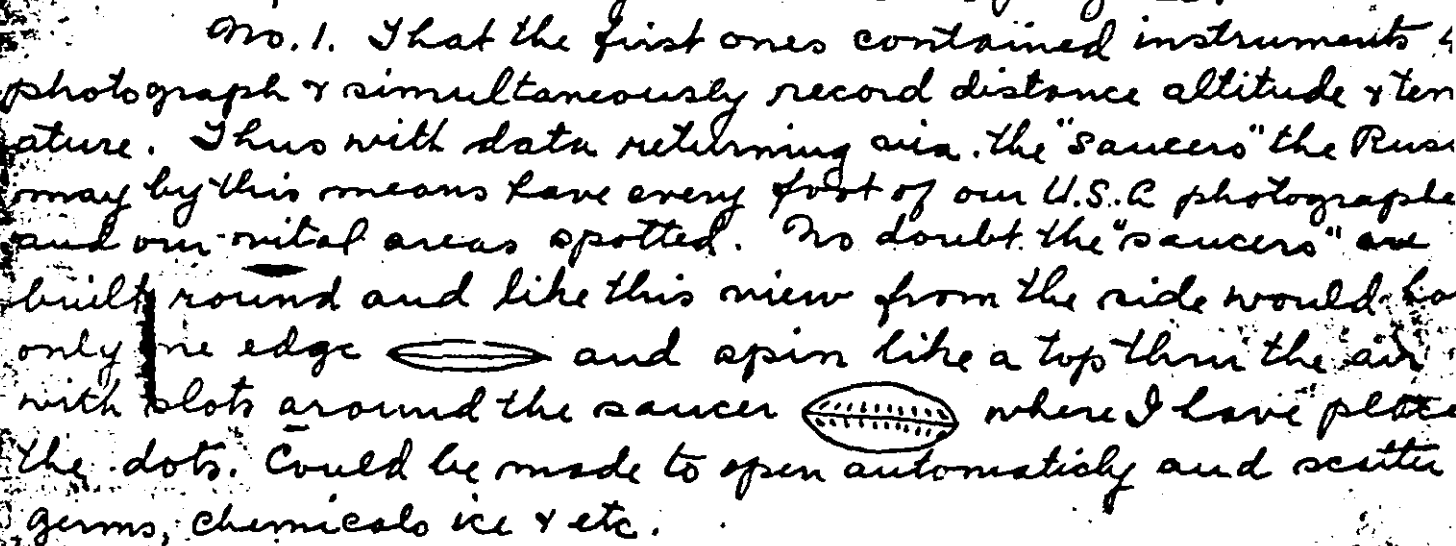 No. 1. That the first ones contained instruments
photograph & simultaneously record distance altitude & tem
ature. Thus with data returning via. the "saucers" the Rus
may by this means have every foot of our U.S.A photographe
and our vital areas spotted. No doubt the "saucers" are
built round and like this view from the side would ha
only ne edge and spin like a top thru the air
with slots around the saucer where I have place
the dots. Could be made to open automaticly and scatter
germs, chemicals ice & etc.